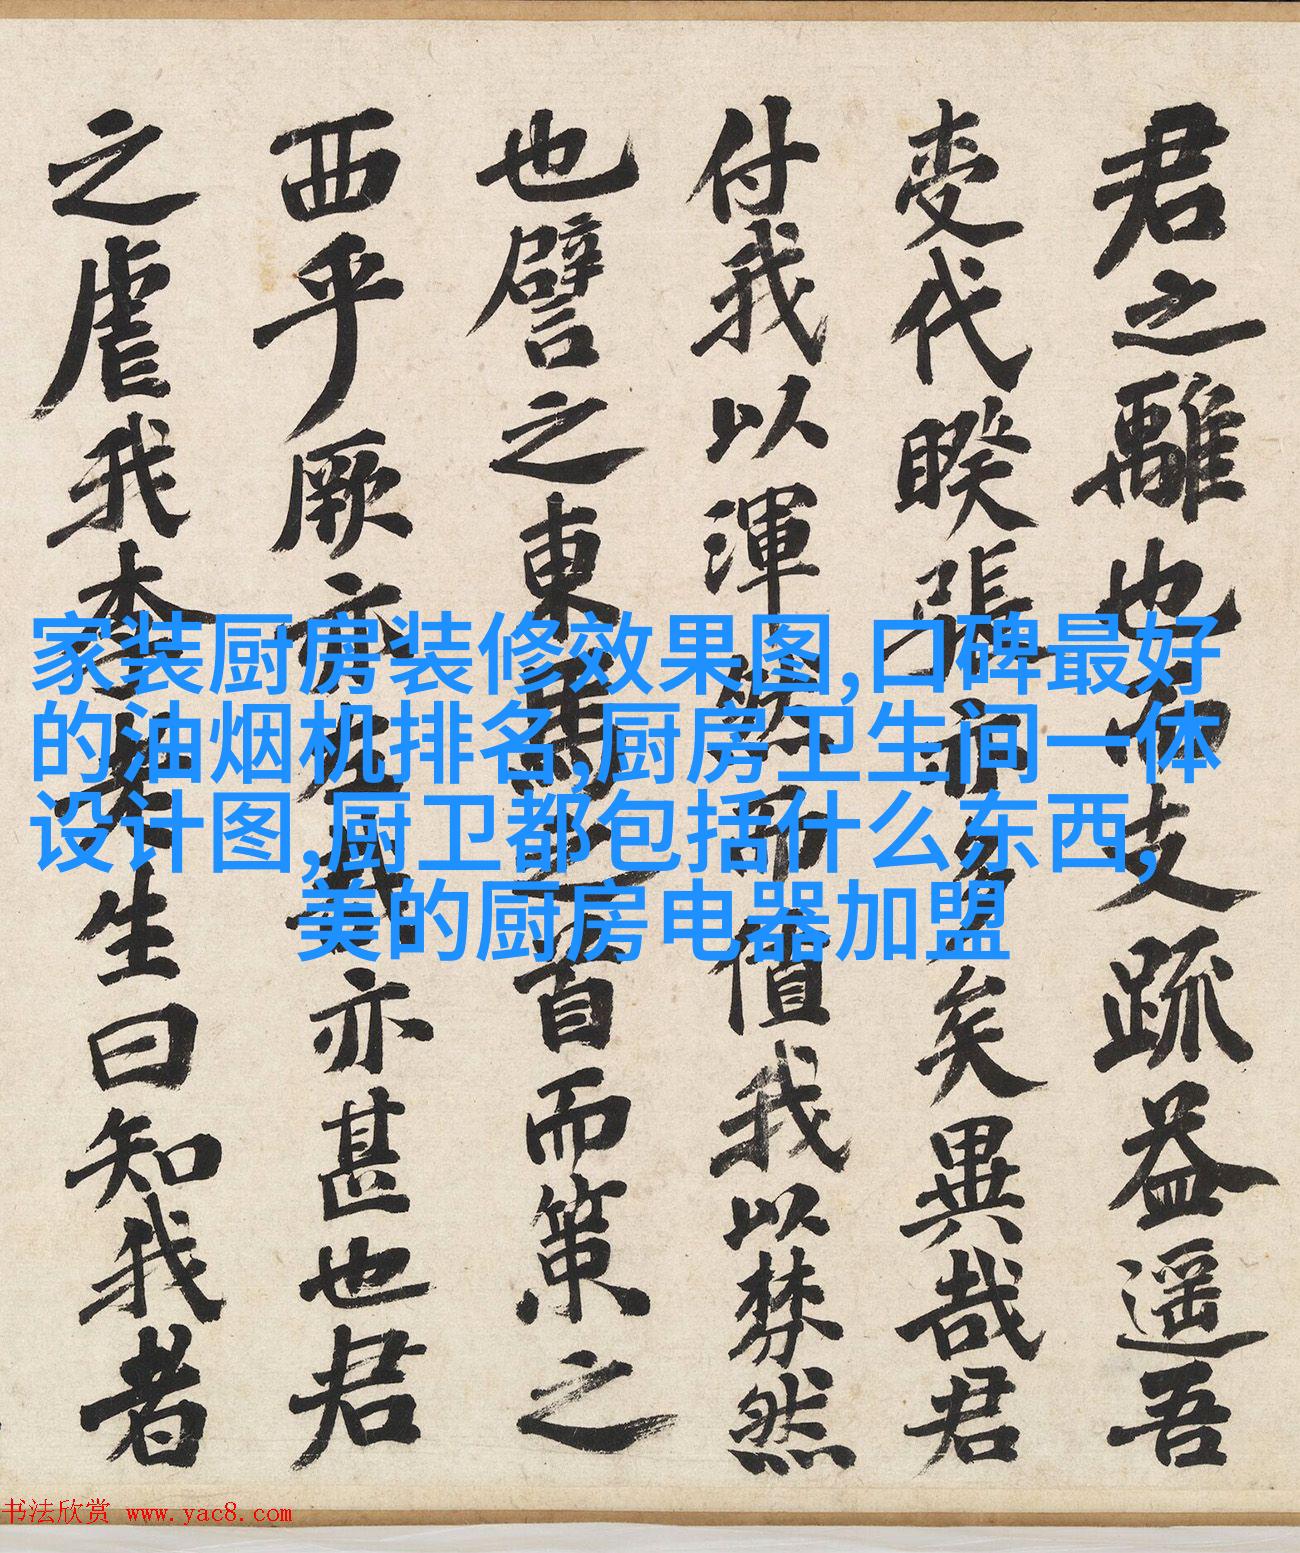 君之離也支疏益遥吾
代睽張多矣異哉君
付我以渾然即值我以棼然
也譬之東馬之首而策之
西乎厥亦亦甚也君
之虐我生曰知我者
家装厨房装修效果图,口碑最好
的油烟机排名,厨房卫生间一体
设计图,厨卫都包括什么东西,
美的厨房电器加盟
书法欣赏 www.yac8.com